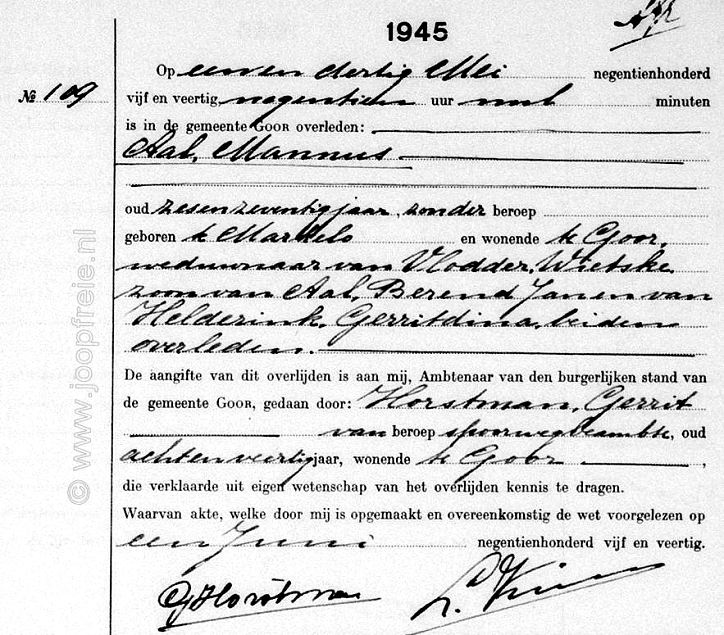 1945
Op eenen dertig Mei negentienhonderd
№ 109 vijf en veertig, negentien uur nul minuten
is in de gemeente Goor overleden:
Aal, Mannus
oud zesenzeventig jaar, zonder beroep
geboren te Markelo en wonende te Goor,
weduwnaar van Vlodder, Wietske
zoon van Aal, Berend Jan en van
Helderink, Gerritdina, beiden
overleden.
De aangifte van dit overlijden is aan mij, Ambtenaar van den burgerlijken stand van
de gemeente Goor, gedaan door: Horstman, Gerrit
van beroep spoorwegbeambte, oud
achtenveertig jaar, wonende te Goor,
die verklaarde uit eigen wetenschap van het overlijden kennis te dragen.
Waarvan akte, welke door mij is opgemaakt en overeenkomstig de wet voorgelezen op
een Juni negentienhonderd vijf en veertig.
GHorstman
© www.joopfreie.nl